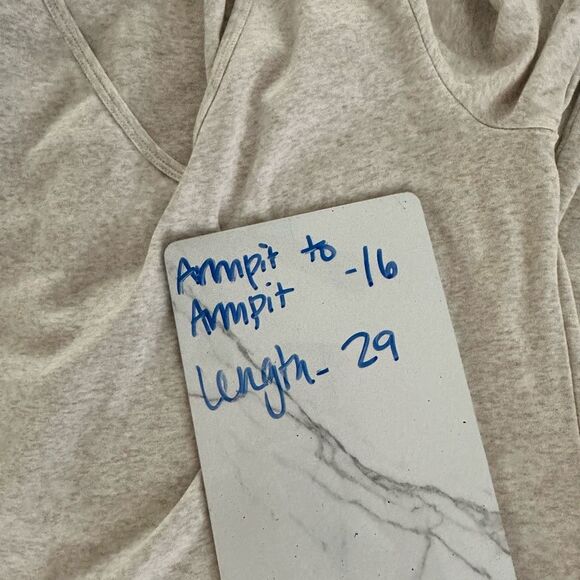 Armpit to
Armpit -16
Length- 29